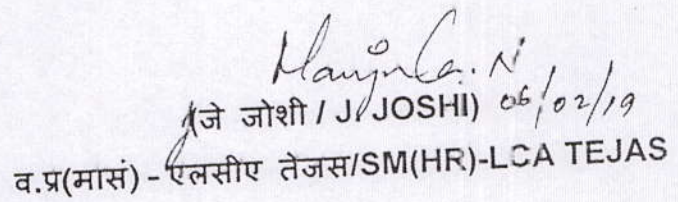 Manjula. N
(जे जोशी / J JOSHI) 06/02/19
व.प्र(मासं) - एलसीए तेजस/SM(HR)-LCA TEJAS